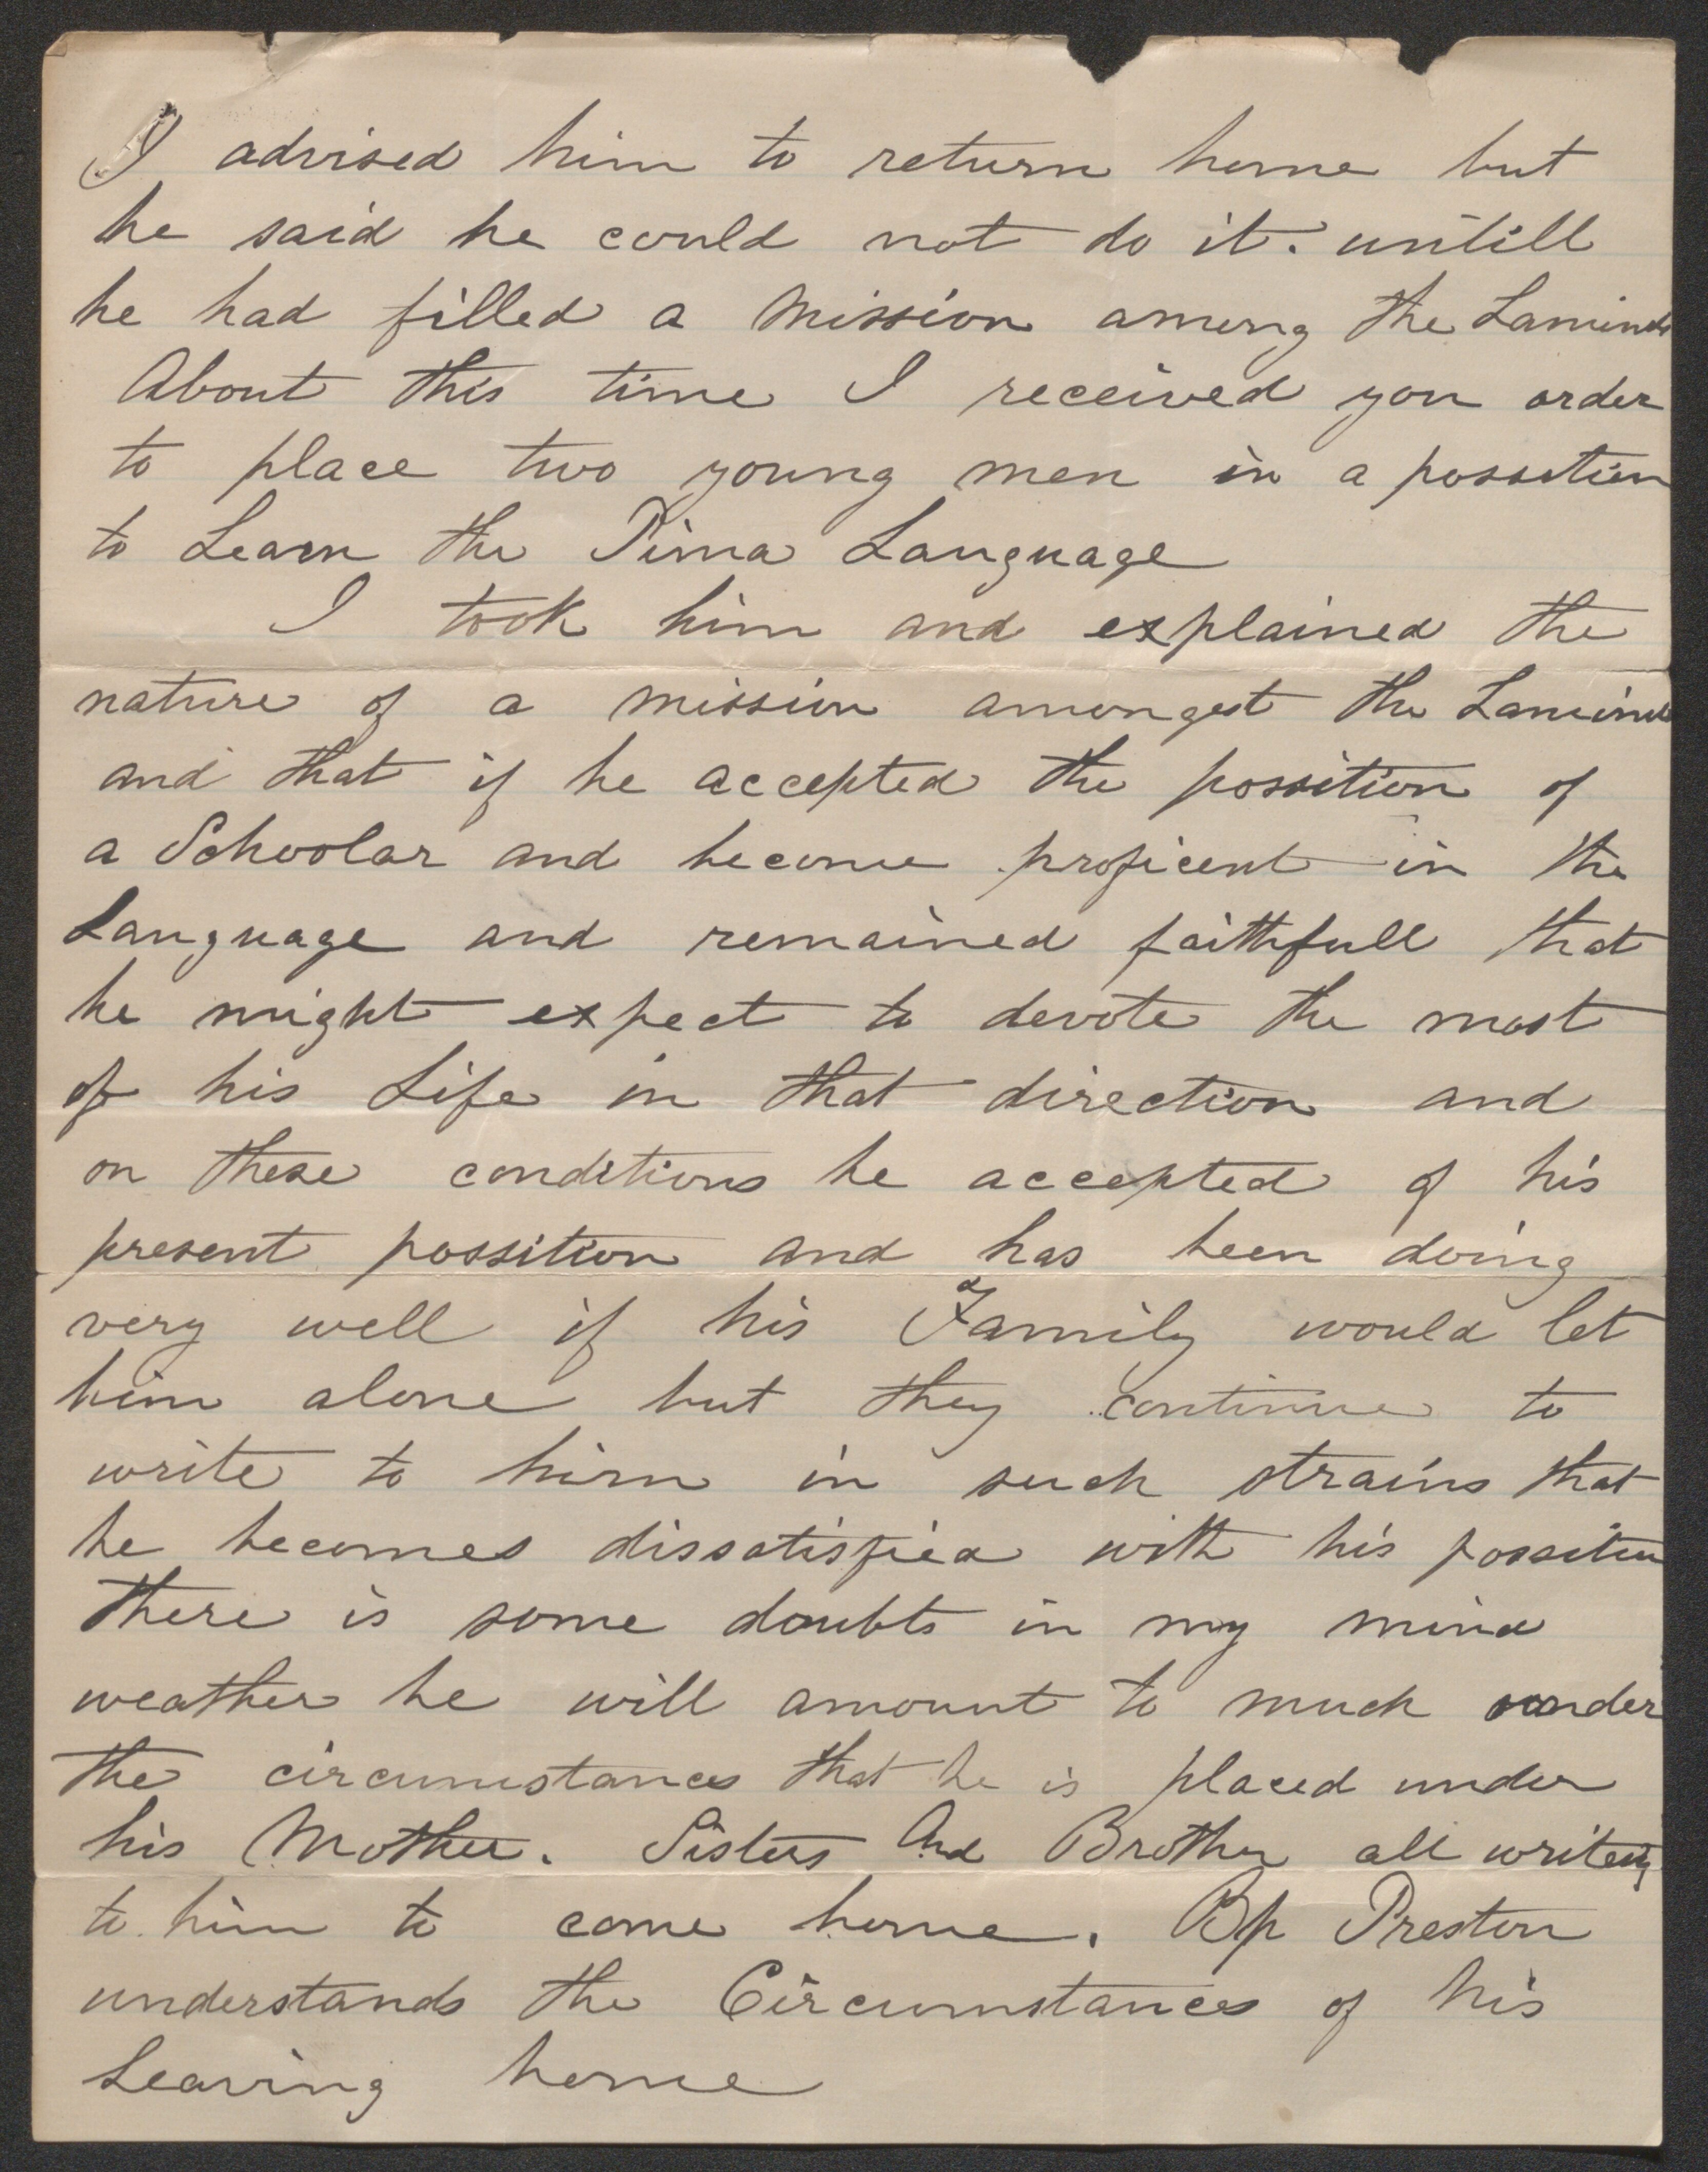 I advised him to return home but
he said he could not do it. untill
he had filled a Mission among the
About this time I received you order
to place two young men in a possition
to Learn the Pima Language
I took him and explained the
nature of a mission amongest the
and that if he accepted the possition of
a Schoolar and become proficent in the
Language and remained faithfull that
he might expect to devote the most
of his Life in that direction and
on these conditions he accepted of his
present possition and has been doing
very well if his Family would let
him alone but they continue to
write to him in such strains that
he becomes dissatisfied with his possition
there is some doubts in my mind
weather he will amount to much under
the circumstances that he is placed under
his Mother. Sisters And Brother all writeing
to him to come home. Bp Preston
understands the Circumstances of his
Leaving home